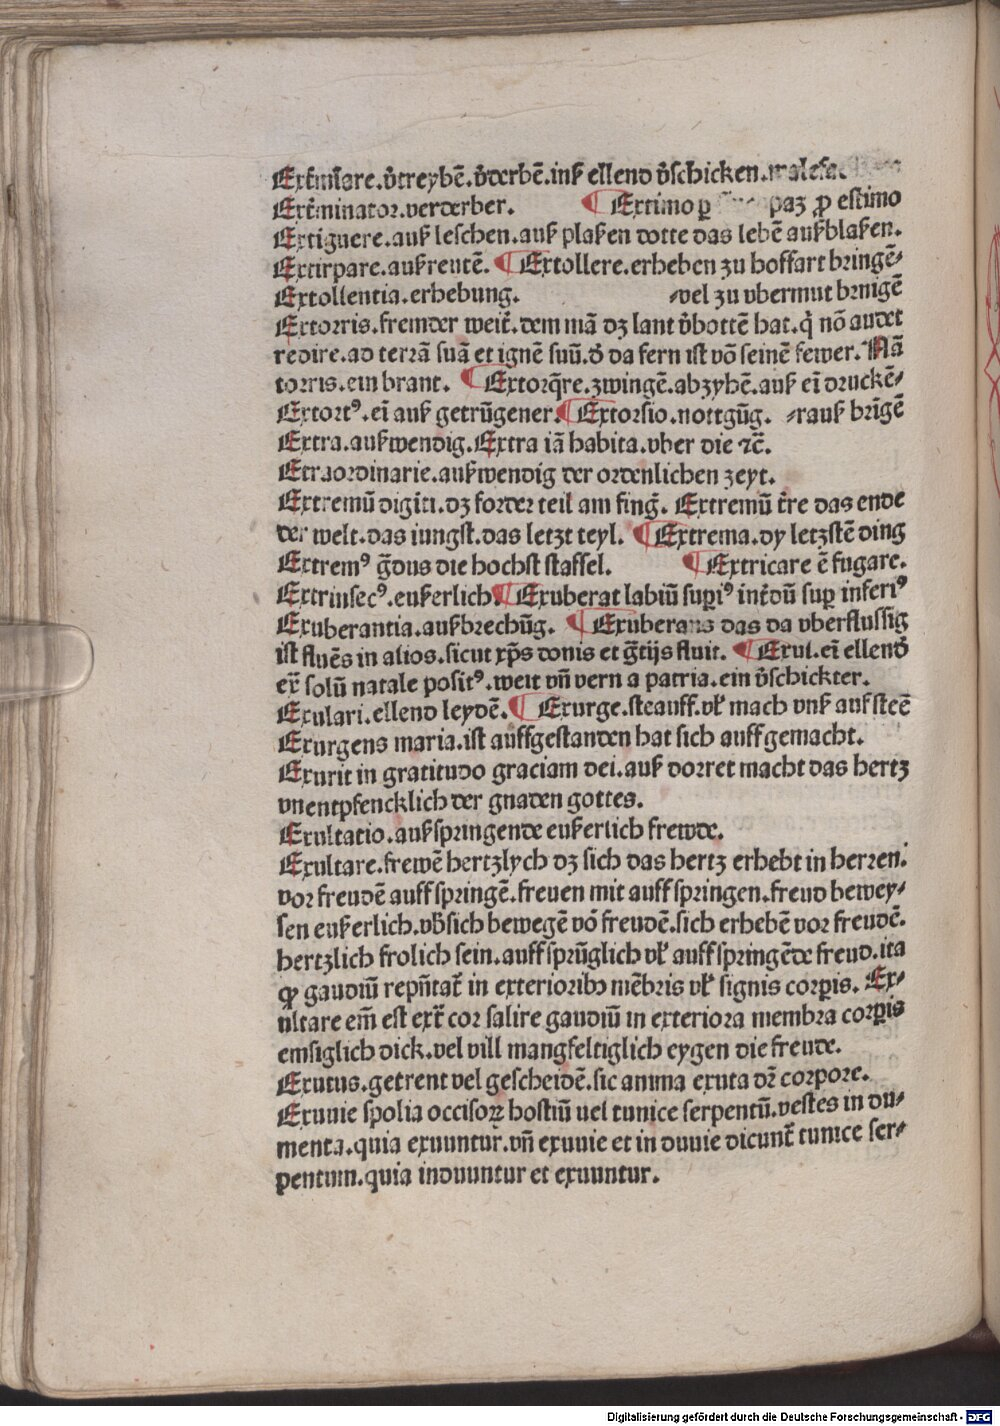 Ext̃mĩare.v̉treybẽ.v̉derbẽ.inß ellend v̉schicken.
Ext̃minator.verderber. ¶ Extimo ꝑ paꝫ ꝓ estimo
Extiguere.auß leschen.auß plaßen dotte das lebẽ außblaßen.
Extirpare.außreutẽ. ¶ Extollere.erheben zu hoffart bringẽ⸗
Extollentia.erhebung. ⸗vel zu vbermut brnigẽ
Extorris.fremder weit̃.dem mã dꝫ lant v̉bottẽ hat.q̉ nõ audet
redire.ad terrã suã et ignẽ suũ.d̉ da fern ist võ seinẽ fewer. Nã
torris.ein brant. ¶ Extorq̃re.zwingẽ.abzyhẽ.auß eĩ druckẽ⸗
Extortꝰ.eĩ auß getrũgener. ¶ Extorsio.nottgũg. ⸗rauß brĩgẽ
Extra.außwendig.Extra iã habita.vber die ⁊c̃.
Etraordinarie.außwendig der ordenlichen zeyt.
Extremũ digiti.dꝫ forder teil am fing̉. Extremũ t̃re das ende
der welt.das iungst.das letzt teyl. ¶ Extrema.dy letzstẽ ding
Extremꝰ g̃dus die hochst staffel. ¶ Extricare ẽ fugare.
Extrinsecꝰ.eußerlich. ¶ Exuberat labiũ suꝑiꝰ int̉dũ suꝑ inferiꝰ
Exuberantia.außbrechũg. ¶ Exuberans das da vberflussig
ist fluẽs in alios.sicut xp̃s donis et g̃tijs fluit. ¶ Exul.eĩ ellend̉
ex̃ solũ natale positꝰ.weit vñ vern a patria.ein v̉schickter.
Exulari.ellend leydẽ. ¶ Exurge.steauff.vł mach vnß auf steẽ
Exurgens maria.ist auffgestanden hat sich auff gemacht.
Exurit in gratitudo graciam dei.auß dorret macht das hertz
vnentpfencklich der gnaden gottes.
Exultatio.außspringende eußerlich frewde.
Exultare.frewẽ hertzlych dꝫ sich das hertz erhebt in herzen.
vor freudẽ auff springẽ.freuen mit auff springen.freud bewey⸗
sen eußerlich.vb̉sich bewegẽ võ freudẽ.sich erhebẽ vor freudẽ.
hertzlich frolich sein.auff sprũglich vł auff springẽde freud.ita
ꝙ gaudiũ repñtat̃ in exterioribꝫ mẽbris vł signis corꝑis. Ex⸗
ultare em̃ est ext̃ cor salire gaudiũ in exteriora membra corꝑis
emsiglich dick.vel vill mangfeltiglich eygen die freude.
Exutus.getrent vel gescheidẽ.sic anima exuta dr̃ corpore.
Exuuie spolia occisoꝝ hostiũ uel tunice serpentũ.vestes in du⸗
menta.quia exuuntur.vñ exuuie et in duuie dicunt̃ tunice ser⸗
pentum.quia induuntur et exuuntur.
Digitalisierung gefördert durch die Deutsche Forschungsgemeinschaft - DFG